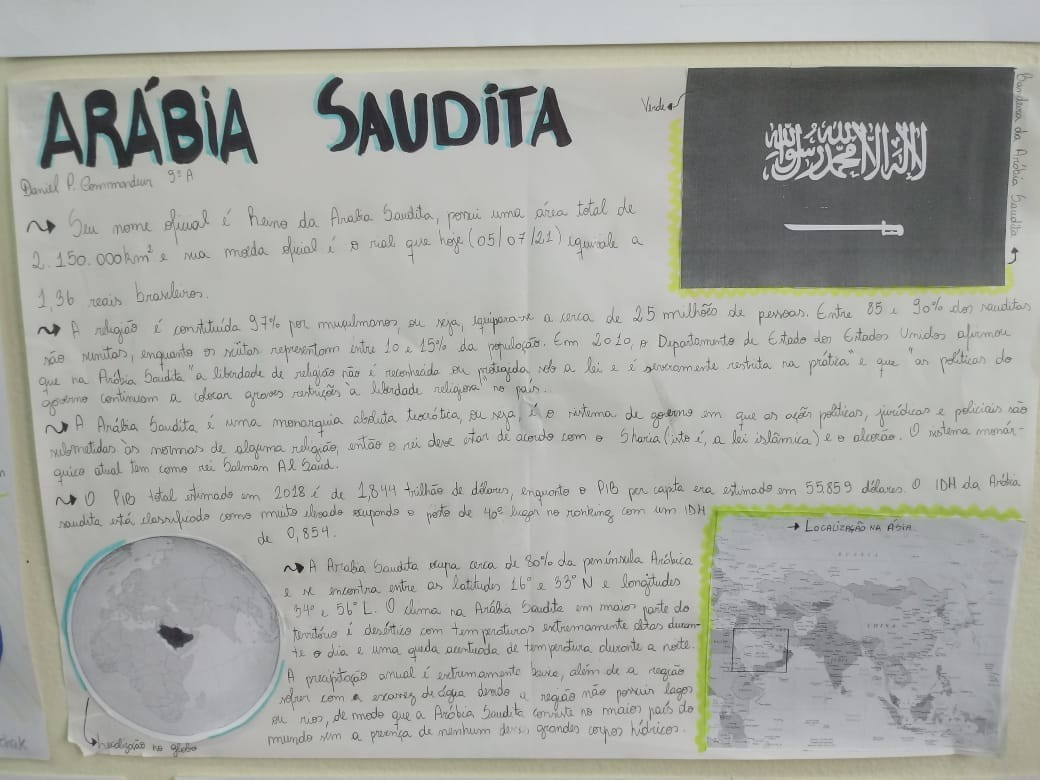 ARÁBIA SAUDITA
Daniel P. 9º A
Verde
Bandeira da Arábia Saudita
لا إله إلا الله محمد رسول الله
Seu nome oficial é Reino da Arabia Saudita, possui uma área total de
2.150.000km² e sua moeda oficial é o rial que hoje (05/07/21) equivale a
1,36 reais brasileiros.
A religião é constituída 97% por muçulmanos, ou seja, equipara-se a cerca de 25 milhões de pessoas. Entre 85 e 90% dos sauditas
são sunitas, enquanto os xiitas representam entre 10 e 15% da população. Em 2010, o Departamento de Estado dos Estados Unidos afirmou
que na Arábia Saudita "a liberdade de religião não é reconhecida ou protegida sob a lei e é severamente restrita na prática" e que "as políticas do
governo continuam a colocar graves restrições à liberdade religiosa" no país.
A Arábia Saudita é uma monarquia absoluta teocrática, ou seja, é o sistema de governo em que as ações políticas, jurídicas e policiais são
submetidas às normas de alguma religião, então o rei deve estar de acordo com o Sharia (isto é, a lei islâmica) e o alcorão. O sistema monár-
quico atual tem como rei Salman Al Saud.
O PIB total estimado em 2018 é de 1,844 trilhão de dólares, enquanto o PIB per capita era estimado em 55.859 dólares. O IDH da Arábia
saudita está classificado como muito elevado ocupando o posto de 40º lugar no ranking com um IDH
de 0,854.
A Arabia Saudita ocupa cerca de 80% da península Arábica
e se encontra entre as latitudes 16° e 33° N e longitudes
34° e 56° L. O clima na Arábia Saudita em maior parte do
território é desértico com temperaturas extremamente altas duran-
te o dia e uma queda acentuada de temperatura durante a noite.
A precipitação anual é extremamente baixa, além de a região
sofrer com a escassez de água dendo a região não possuir lagos
ou rios, de modo que a Arábia Saudita consiste no maior país do
mundo sem a presença de nenhum desses grandes corpos hídricos.
Localização no globo
LOCALIZAÇÃO NA ÁSIA
RUSSIA
CHINA